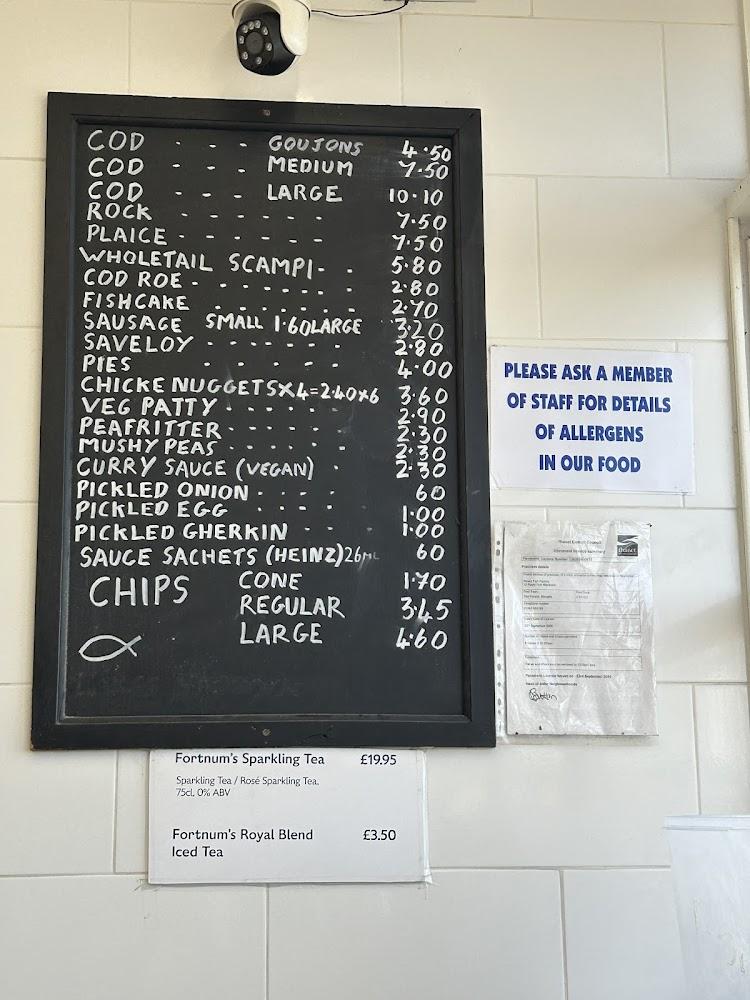 COD - - - GOUJONS 4.50
COD - - - MEDIUM 7.50
COD - - - LARGE 10.10
ROCK - - - - - - 7.50
PLAICE - - - - - - 7.50
WHOLETAIL SCAMPI - - - 5.80
COD ROE - - - - - - 2.80
FISHCAKE - - - - - - 2.70
SAUSAGE SMALL 1.60 LARGE 3.20
SAVELOY - - - - - 2.80
PIES - - - - - 4.00
CHICKE NUGGETS X4=2.40 X6 3.60
VEG PATTY - - - - - 2.90
PEAFRITTER - - - - - 2.30
MUSHY PEAS - - - - - 2.30
CURRY SAUCE (VEGAN) - 2.30
PICKLED ONION - - - - 60
PICKLED EGG - - - - 1.00
PICKLED GHERKIN - - - 1.00
SAUCE SACHETS (HEINZ) 26ML 60
CHIPS CONE 1.70
REGULAR 3.45
LARGE 4.60
PLEASE ASK A MEMBER
OF STAFF FOR DETAILS
OF ALLERGENS
IN OUR FOOD
Thanet District Council
Fortnum's Sparkling Tea £19.95
Sparkling Tea / Rosé Sparkling Tea,
75cl, 0% ABV
Fortnum's Royal Blend £3.50
Iced Tea